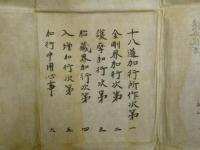 十八道加行所作次第 一
金剛界加行次第 二
護摩加行次第 三
胎蔵界加行次第 四
入壇加行次第 五
加行中用心事 六